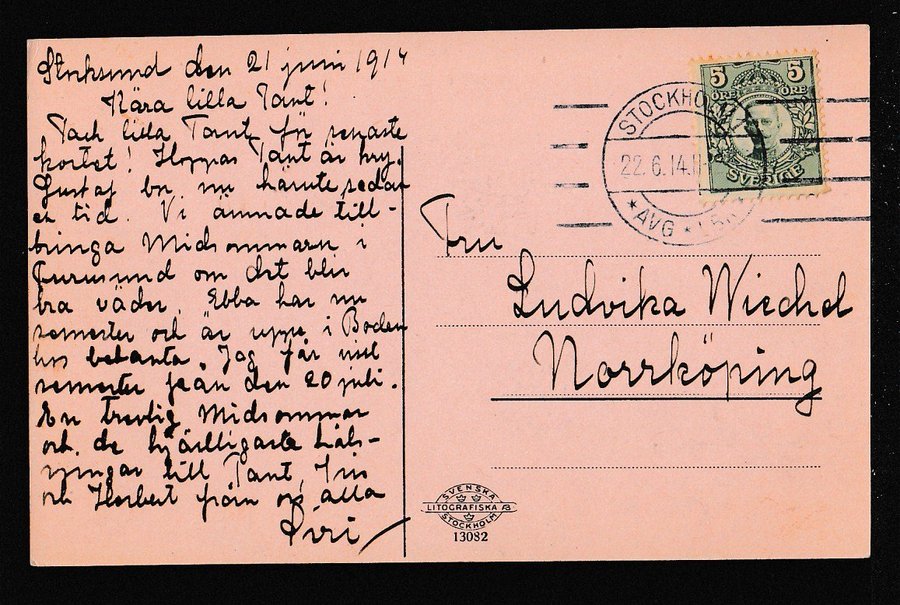 Stocksund den 21 juni 1914
Kära lilla Tant!
Tack lilla Tant för senaste
kortet! Hoppas Tant är kry.
Gustaf bor nu härute sedan
en tid. Vi ämnade till-
bringa Midsommarn i
Furusund om det blir
bra väder. Ebba har nu
semester och är uppe i Boden
hos bekanta. Jag får min
semester från den 20 juli.
En trevlig Midsommar
och de hjärtligaste häls-
ningar till Tant, Iris
och Herbert från oss alla
Siri
5 5
ÖRE ÖRE
SVERIGE
STOCKHOLM
22.6.14.11
AVG
Fru
Ludvika Wiechel
Norrköping
SVENSKA
LITOGRAFISKA AB
STOCKHOLM
13082